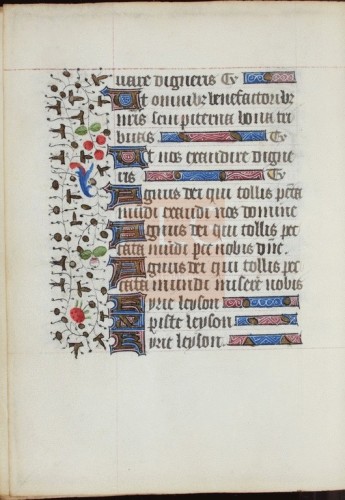 uare digneris Te
Ut omnibz benefactoribz
nris sempiterna bona tri
buas Te
Ut nos exaudire digne
ris Te
Agnus dei qui tollis pccta
mūdi exaudi nos domine
Agnus dei qui tollis pec
cata mūdi pce nobis dne.
Agnus dei qui tollis pec
cata mundi misere nobis
Kyrie leyson
Xpiste leyson
Kyrie leyson.